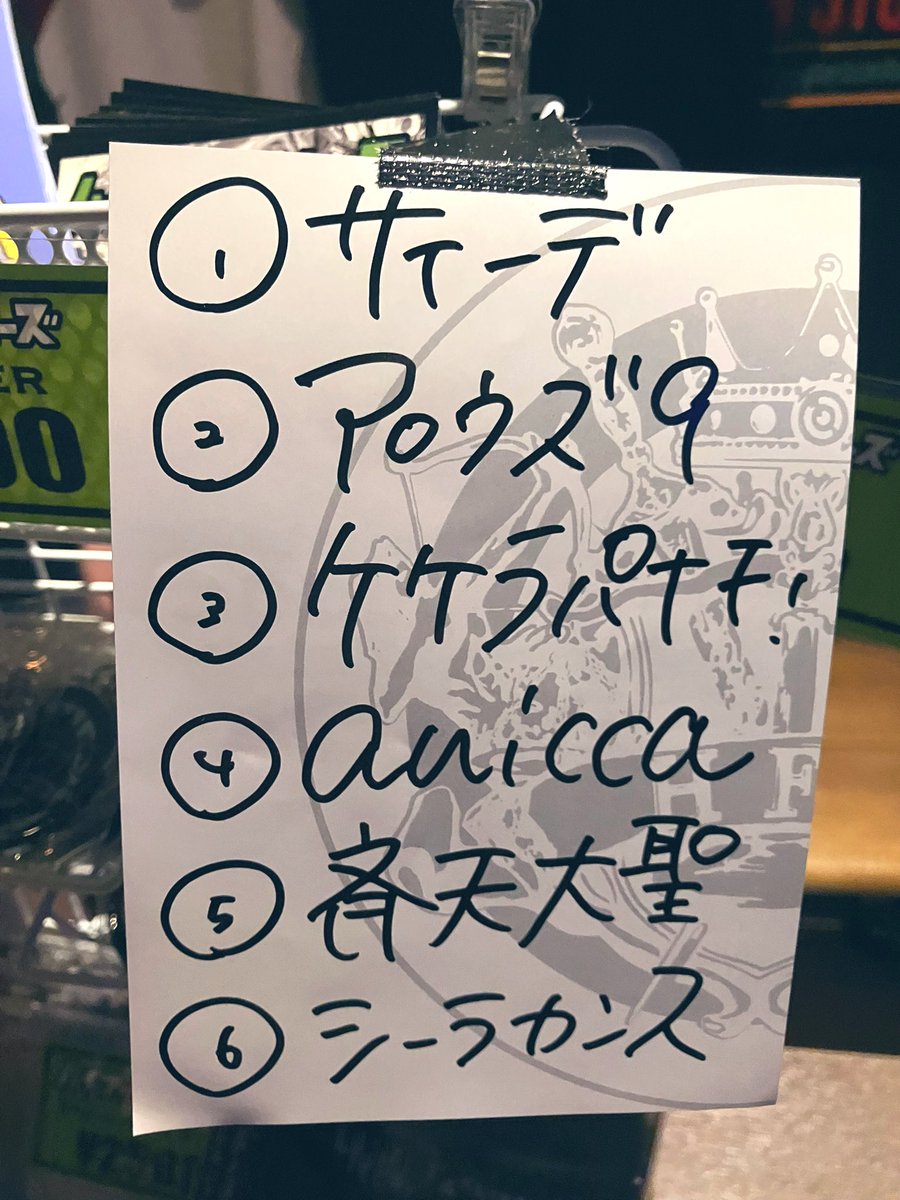 ① サイーデ
② アロウズ9
③ ケケラパナモ!
④ anicca
⑤ 斉天大聖
⑥ シーラカンス
ーズ
ER
00
ズ